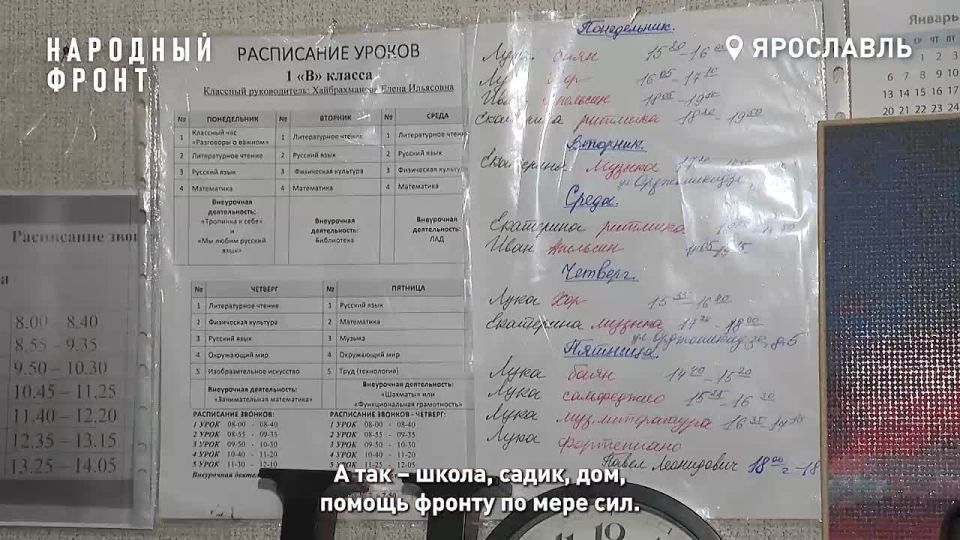 НАРОДНЫЙ
ФРОНТ
ЯРОСЛАВЛЬ
РАСПИСАНИЕ УРОКОВ
1 «В» класса
Классный руководитель: Елена Ильясовна
№ ПОНЕДЕЛЬНИК № ВТОРНИК № СРЕДА
1 Классный час «Разговоры о важном» 1 Литературное чтение 1 Литературное чтение
2 Литературное чтение 2 Русский язык 2 Русский язык
3 Русский язык 3 Физическая культура 3 Физическая культура
4 Математика 4 Математика 4 Математика
Внеурочная деятельность: Внеурочная деятельность: Внеурочная деятельность:
«Тропинка к себе» Библиотека ЛАД
и
«Мы любим русский язык»
№ ЧЕТВЕРГ № ПЯТНИЦА
1 Литературное чтение 1 Русский язык
2 Физическая культура 2 Математика
3 Русский язык 3 Музыка
4 Окружающий мир 4 Окружающий мир
5 Изобразительное искусство 5 Труд (технология)
Внеурочная деятельность: Внеурочная деятельность:
«Занимательная математика» «Шахматы» или
«Функциональная грамотность»
РАСПИСАНИЕ ЗВОНКОВ РАСПИСАНИЕ ЗВОНКОВ - ЧЕТВЕРГ:
1 УРОК 08-00 - 08-40 1 УРОК 08-00 - 08-40
2 УРОК 08-55 - 09-35 2 УРОК 08-55 - 09-35
3 УРОК 09-50 - 10-30 3 УРОК 09-50 - 10-30
4 УРОК 10-40 - 11-20
5 УРОК 11-30 - 12-10
Расписание
8.00 – 8.40
8.55 – 9.35
9.50 – 10.30
10.45 – 11.25
11.40 – 12.20
12.35 – 13.15
13.25 – 14.05
Понедельник.
Лука баян
Лука Хор 16 05 - 17 10
Иван Апельсин
Екатерина ритмика
Вторник.
Екатерина музыка
ул. Орджоникидзе
Среда.
Екатерина ритмика
Иван Апельсин
Четверг.
Лука Хор
Екатерина музыка 17 20 - 18 00
ул. Орджоникидзе, д.5
Пятница.
Лука баян 14 40 - 15 20
Лука сольфеджио
Лука музлитература
Лука фортепиано
Павел Леонидович
Январь
ЧТ ПТ
1 2 3
6 7 8 9 10
13 14 15 16 17
20 21 22 23
А так – школа, садик, дом,
помощь фронту по мере сил.